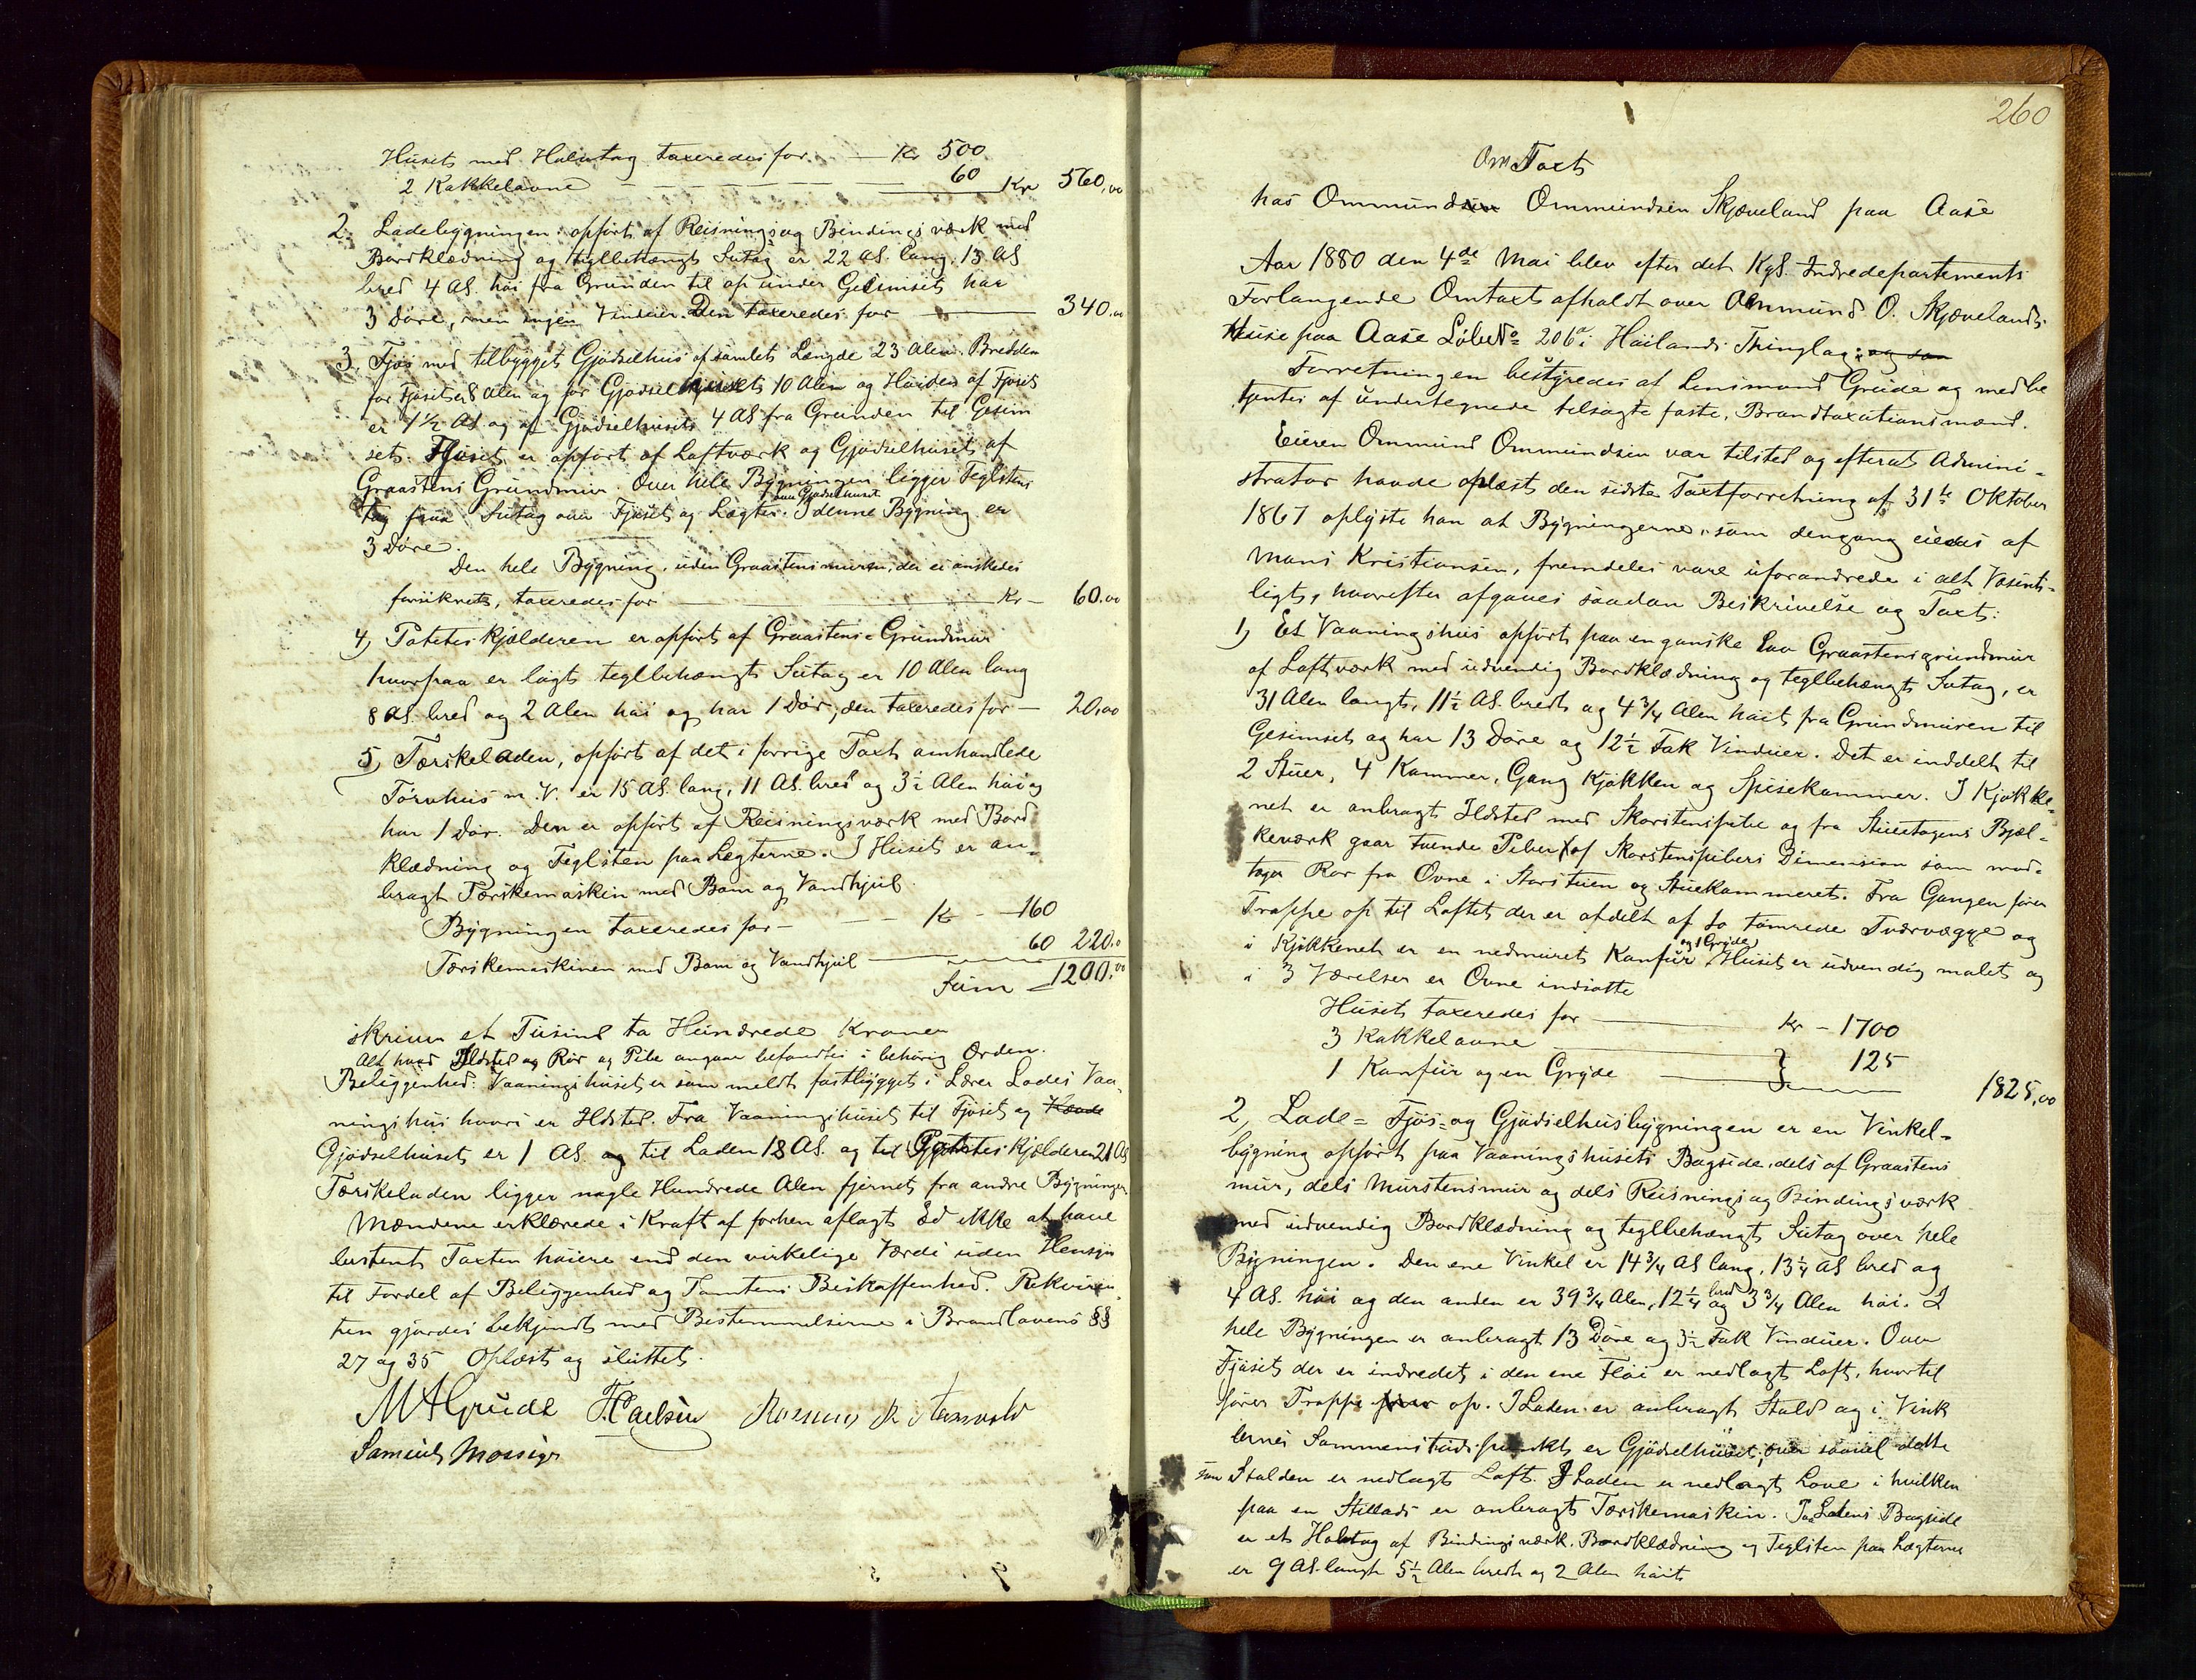 Huset med Halvtag taxeredes for — Kr 500
2 Kakkelovne — 60 Kr 560,00
2. Ladebygningen opført af Reisnings og Bindingsværk med
Bordklædning og teglbehængt Sutag er 22 Al. lang, 13 Al
bred 4 Al. høi fra Grunden til op under Gesimset har
3 Døre, men ingen Vinduer. Den taxeredes for — 340.00
3, Fjøs med tilbygget Gjødselhus af samlet Længde 23 Alen. Bredden
for Fjøset er 8 Alen og for Gjødselhuset 10 Alen og Høiden af Fjøset
er 4½ Al. og af Gjødselhuset 4 Al fra Grunden til Gesim
set. Fjøset er opført af Laftværk og Gjødselhuset af
Graastens Grundmur. Over hele Bygningen ligger Teglstens
tag paa Sutag over Fjøset og Lægter over Gjødselhuset. I denne Bygning er
3 Døre.
Den hele Bygning, uden Graastensmuren, der ei ønskedes
forsikret, taxeredes for — Kr — 60.00
4, Potetes kjælderen er opført af Graastens Grundmur
hvorpaa er lagt teglbehængt Sutag er 10 Alen lang
8 Al. bred og 2 Alen høi og har 1 Dør, den taxeredes for — 20,00
5, Tærskeladen, opført af det i forrige Taxt omhandlede
Tørvhus m. V. er 15 Al. lang, 11 Al. bred og 3½ Alen høi og
har 1 Dør. Den er opført af Reisningsværk med Bord
klædning og Teglsten paa Lægterne. I Huset er an-
bragt Tærskemaskin med Bom og Vandhjul.
Bygningen taxeredes for — Kr — 160
Tærskemaskinen med Bom og Vandhjul — 60 220.0
Sum — 1200.00
skriver et Tusind to Hundrede Kroner
Alt hvad Ildsted og Rør og Pibe angaar befandtes i behørig Orden.
Beliggenhed: Vaaningshuset er som meldt fastbygget i Lærer Lodes Vaa-
ningshus hvori er Ildsted. Fra Vaaningshuset til Fjøset og
Gjødselhuset er 1 Al. og til Laden 18 Al. og til Potetes kjælderen 21 Al
Tærskeladen ligger nogle Hundrede Alen fjernet fra andre Bygninger
Mændene erklærede i Kraft af forhen aflagt Ed ikke at have
bestemt Taxten høiere end den virkelige Værdi uden Hensyn
til Fordel af Beliggenhed og Tomtens Beskaffenhed. Rekviren
ten gjordes bekjendt med Bestemmelserne i Brandlovens §§
27 og 35 Oplæst og sluttet.
M A Grude T. Carlsen Rasmus R
Samuel Mossige
260
Om Taxt
hos Ommund Ommundsen Skjæveland paa Aase
Aar 1880 den 4de Mai blev efter det Kgl. Indredepartements
Forlangende Omtaxt afholdt over Ommund O. Skjævelands
Huse paa Aase Løbe No 206a i Høilands Thinglag; og som
Forretningen bestyredes af Lensmand Grude og med be
tjentes af undertegnede tilsagte faste, Brandtaxationsmænd.
Eieren Ommund Ommundsen var tilsted og efterat Admini-
strator havde oplæst den sidste Taxtforretning af 31te Oktober
1867 oplyste han at Bygningerne, som dengang eiedes af
Mons Kristiansen, fremdeles vare uforandrede i alt Væsent-
ligt, hvorefter afgaves saadan Beskrivelse og Taxt:
1, Et Vaaningshus opført paa en ganske lav Graastensgrundmur
af Laftværk med udvendig Bordklædning og teglbehængt Sutag, er
31 Alen langt, 11½ Al. bredt og 4¾ Alen høit fra Grundmuren til
Gesimset og har 13 Døre og 12½ Fak Vinduer. Det er inddelt til
2 Stuer, 4 Kammer, Gang Kjøkken og Spisekammer. I Kjøkke-
net er anbragt Ildsted med Skorstenspibe og fra Stuetagens Bjæl-
keværk gaar tvende Piber af Skorstenspibers Dimension som mod-
tager Rør fra Ovne i Storstuen og Stuekammeret. Fra Gangen fører
Trappe op til Loftet der er afdelt af to tømrede Tværvægge og
i Kjøkkenet er en nedmuret Komfur og 1 Gryde. Huset er udvendig malet og
i 3 Værelser er Ovne indsatte
Huset taxeredes for — Kr — 1700
3 Kakkelovne
1 Komfur og en Gryde — } 125
1825,00
2, Lade- Fjøs- og Gjødselhusbygningen er en Vinkel-
bygning opført paa Vaaningshusets Bagside, dels af Graastens
mur, dels Murstensmur og dels Reisnings og Bindingsværk
med udvendig Bordklædning og teglbehængt Sutag over hele
Bygningen. Den ene Vinkel er 14¾ Al lang, 13¼ Al bred og
4 Al. høi og den anden er 39¾ Alen, 12¼ bred og 3¾ Alen høi. I
hele Bygningen er anbragt 13 Døre og 3½ Fak Vinduer. Over
Fjøset der er indredet i den ene Fløi er nedlagt Loft, hvortil
fører Trappe op. I Laden er anbragt Stald og i Vink
lernes Sammenstødspunkt er Gjødselhuset; over saavel dette
som Stalden er nedlagt Loft. I Laden er nedlagt Love i hvilken
paa en Stillads er anbragt Tærskemaskin. Paa Ladens Bagside
er et Halvtag af Bindingsværk, Bordklædning og Teglsten paa Lægterne
er 9 Al. langt 5½ Alen bredt og 2 Alen høit